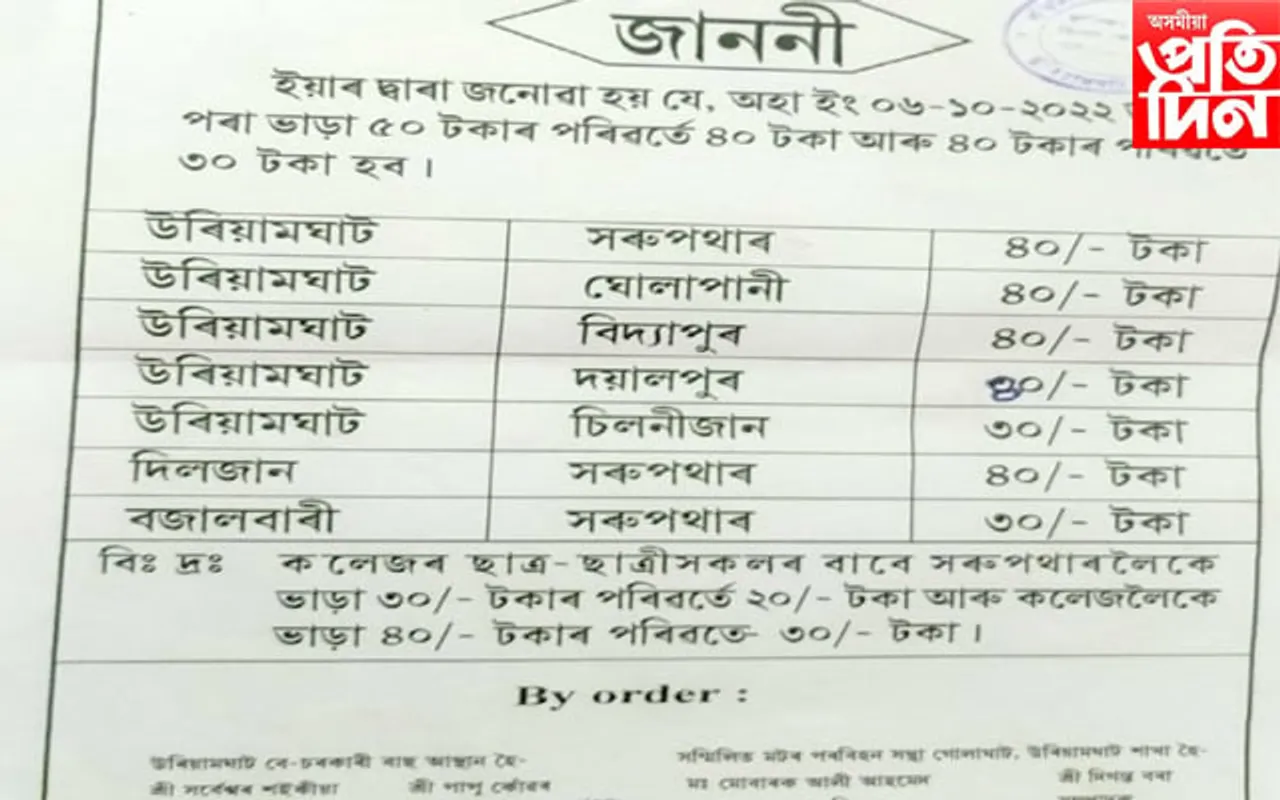 জাননী
অসমীয়া
প্ৰতি
দিন
ইয়াৰ দ্বাৰা জনোৱা হয় যে, অহা ইং ০৬-১০-২০২২
পৰা ভাড়া ৫০ টকাৰ পৰিৱৰ্তে ৪০ টকা আৰু ৪০ টকাৰ পৰিৱৰ্তে
৩০ টকা হব ।
উৰিয়ামঘাট সৰুপথাৰ ৪০/- টকা
উৰিয়ামঘাট ঘোলাপানী ৪০/- টকা
উৰিয়ামঘাট বিদ্যাপুৰ ৪০/- টকা
উৰিয়ামঘাট দয়ালপুৰ ৪০/- টকা
উৰিয়ামঘাট চিলনীজান ৩০/- টকা
দিলজান সৰুপথাৰ ৪০/- টকা
বজালবাৰী সৰুপথাৰ ৩০/- টকা
বিঃ দ্ৰঃ কলেজৰ ছাত্ৰ-ছাত্ৰীসকলৰ বাবে সৰুপথাৰলৈকে
ভাড়া ৩০/- টকাৰ পৰিৱৰ্তে ২০/- টকা আৰু কলেজলৈকে
ভাড়া ৪০/- টকাৰ পৰিৱৰ্তে- ৩০/- টকা ।
By order :
উৰিয়ামঘাট বে-চৰকাৰী বাছ আস্থান হৈ- সন্মিলিত মটৰ পৰিবহন সন্থা গোলাঘাট, উৰিয়ামঘাট শাখা হৈ-
শ্ৰী সৰ্বেশ্বৰ শইকীয়া শ্ৰী পাপু কোঁৱৰ মঃ মোবাৰক আলী আহমেদ শ্ৰী দিগন্ত বৰা